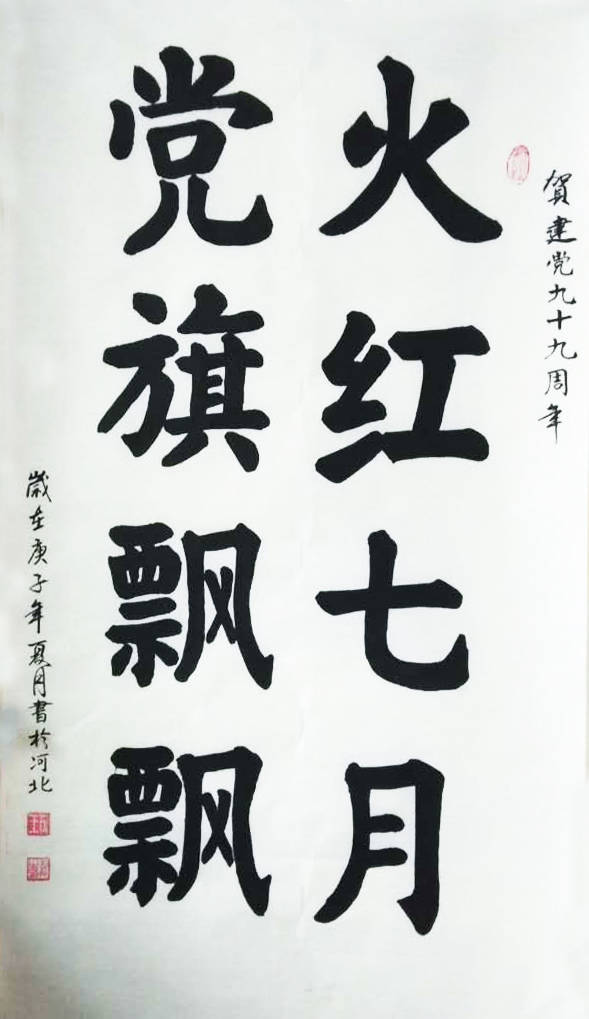 贺建党九十九周年
火红七月
党旗飘飘
歲在庚子年夏月書於河北